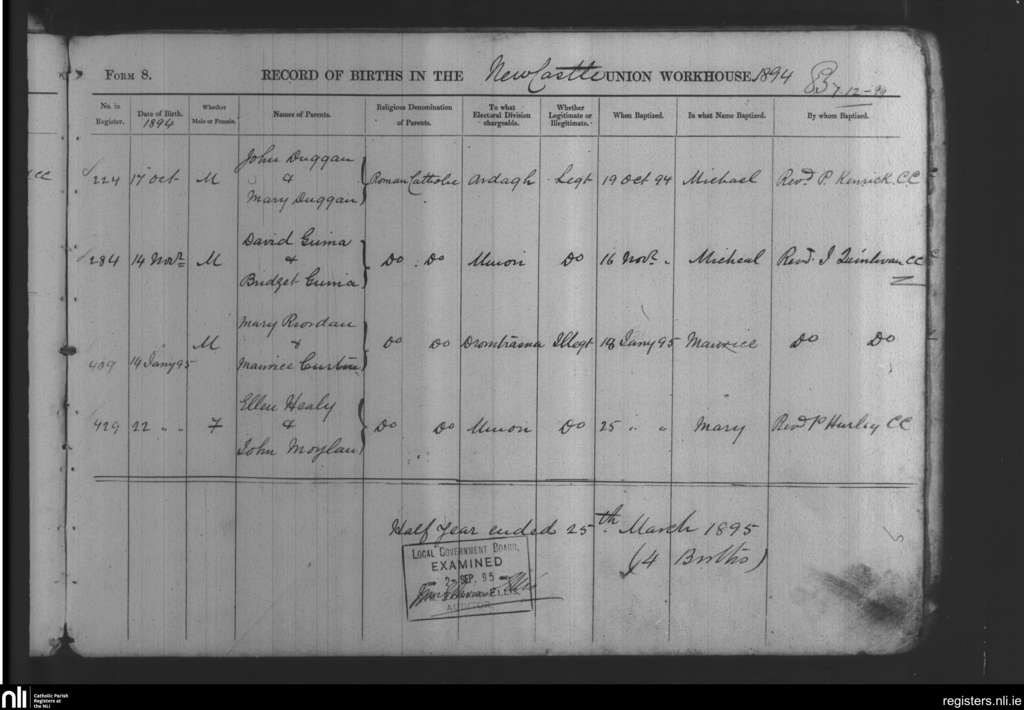 FORM 8. RECORD OF BIRTHS IN THE NewCastle UNION WORKHOUSE 1894
No. in Register. Date of Birth. 1894 Whether Male or Female. Names of Parents. Religious Denomination of Parents. To what Electoral Division chargeable. Whether Legitimate or Illegitimate. When Baptized. In what Name Baptized. By whom Baptized.
John Duggan
224 17 Oct M & Roman Catholic Ardagh Legt 19 Oct 94 Michael Revd. P. Kenrick CC
Mary Duggan
David Guina
284 14 Novr. M & Do Do Union Do 16 Novr. " Micheal Revd. J Quinlivan CC
Bridget Guina
Mary Riordan
M & Do Do Illegt 18 Jany 95 Maurice Do Do
409 14 Jany 95 Maurice Curtin
Ellen Healy
429 22 " " F & Do Do Union Do 25 " " Mary Revd P Hurley CC
John Moylan
Half year ended 25th. March 1895
(4 Births)
LOCAL GOVERNMENT BOARD,
EXAMINED
2- SEP. 95
AUDITOR
nli Catholic Parish
Registers at
the NLI
registers.nli.ie